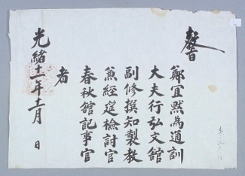 教旨
鄭宜默為通訓
大夫行弘文館
副修撰知製教
兼經筵檢討官
春秋館記事官
者
光緒十一年十二月 日